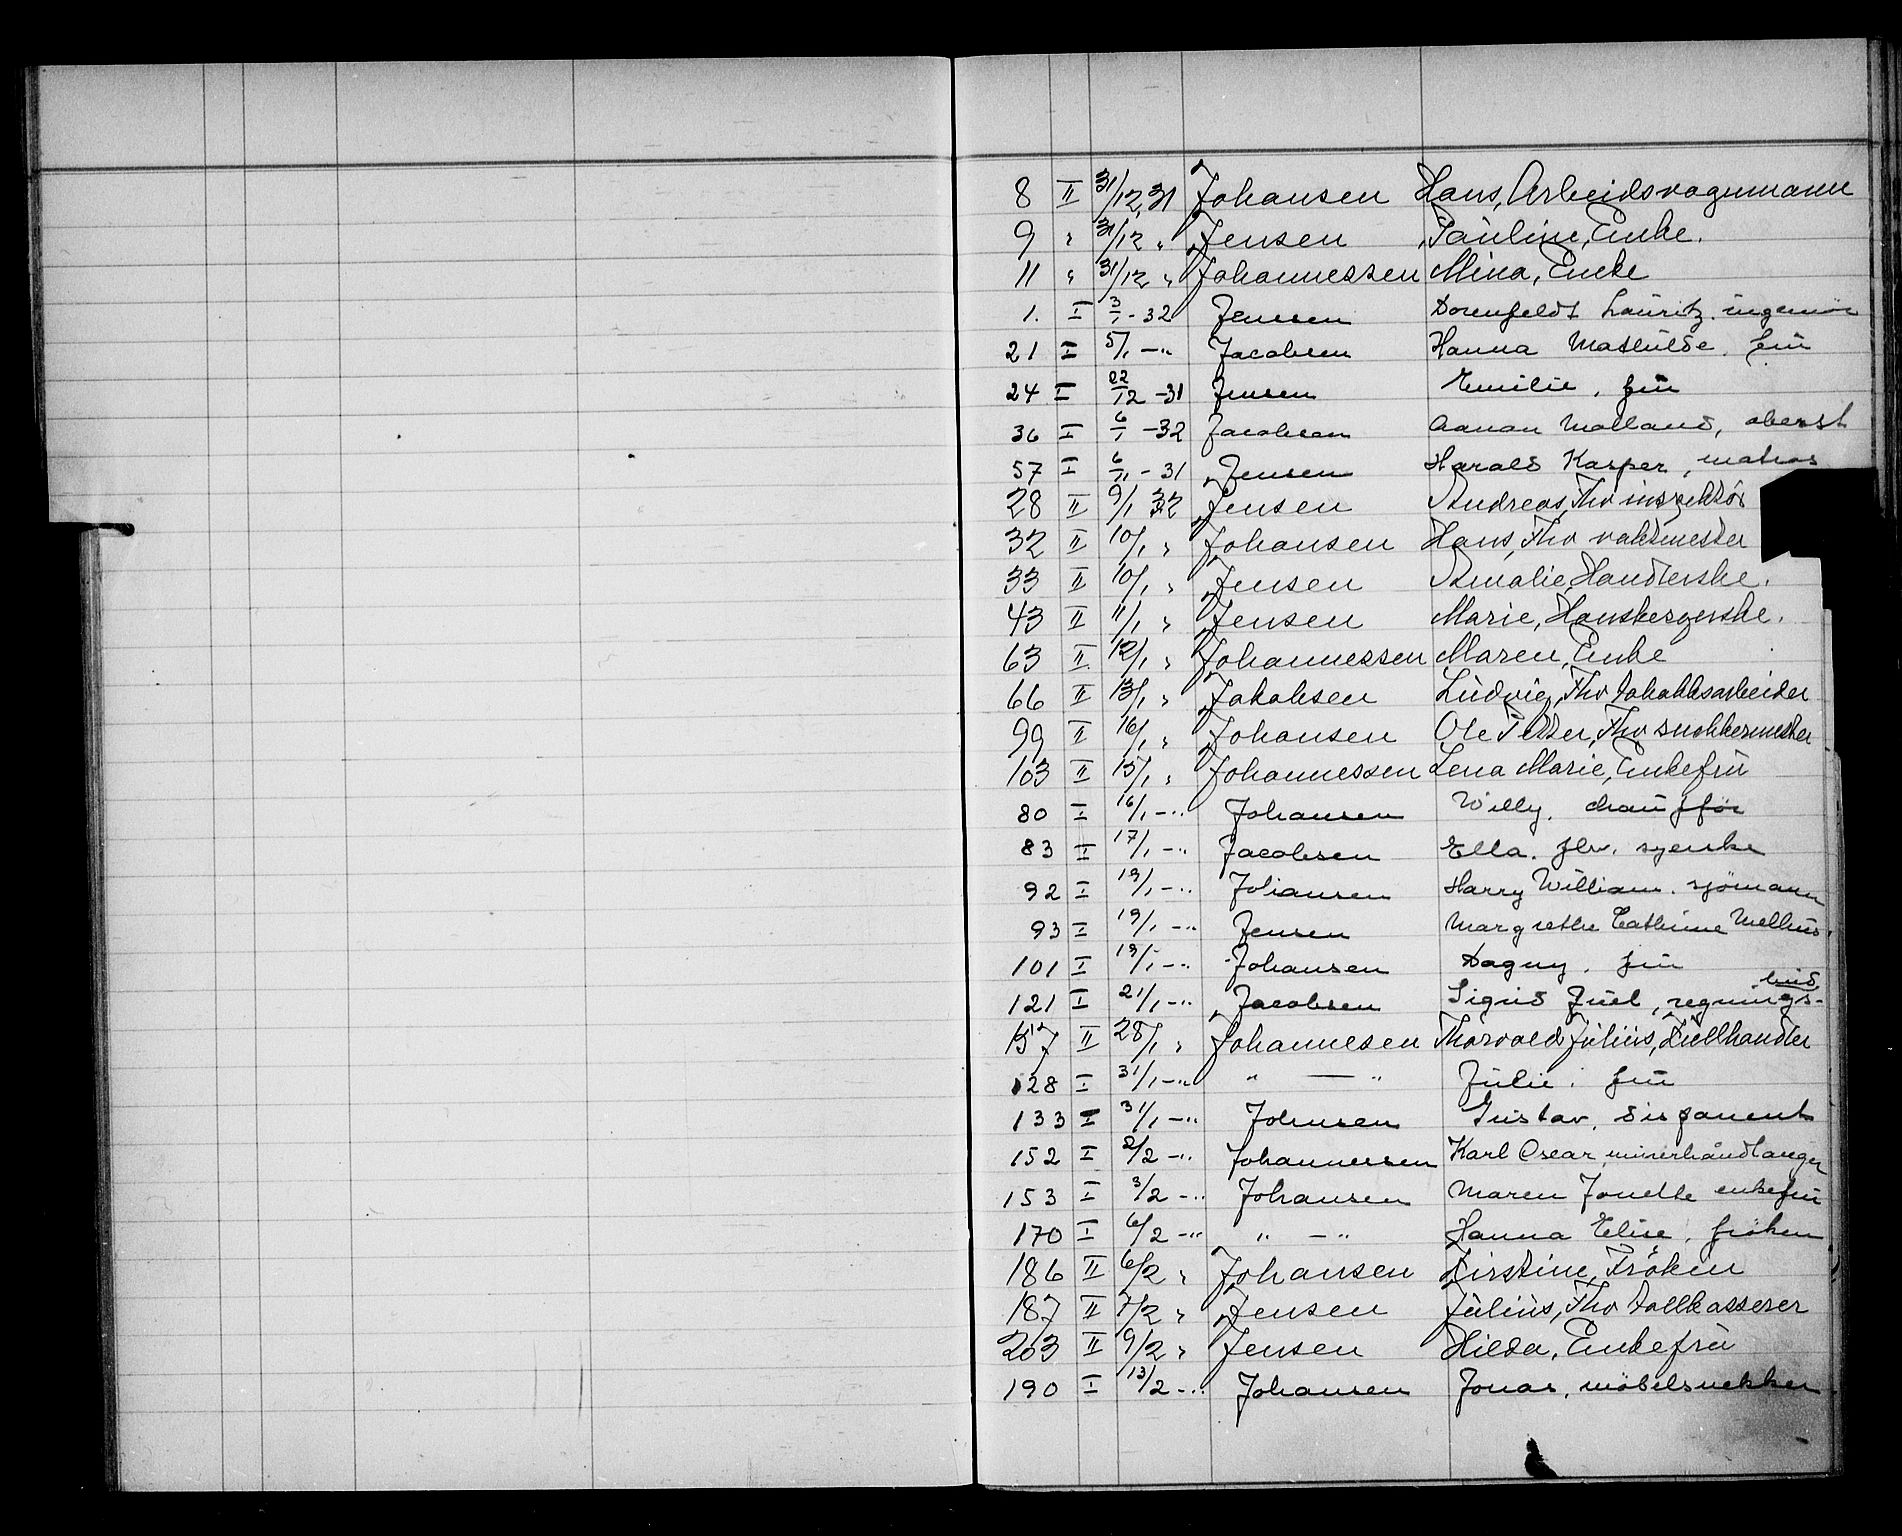 8 II 31/12 31 Johansen Hans, Arbeidsvognmann
9 " 31/12 " Jensen Pauline, Enke.
11 " 31/12 " Johannessen Mina, Enke
1. I 3/1 - 32 Jenssen Dorenfeldt Lauritz. ingeniör
21 I 5/1 - " Jacobsen Hanna Mathilde. frü
24 I 22/12 - 31 Jensen Emilie, frü
36 I 6/1 - 32 Jacobsen Aanan Molland, oberst
57 I 6/11 - 31 Jensen Harald Kasper, matros
28 II 9/1 32 Jensen Andreas, Fhv inspektör
32 II 10/1 " Johansen Hans, Fhv vaktmester
33 II 10/1 " Jensen Amalie, Handlerske.
43 II 11/1 " Jensen Marie, Hanskesyerske.
63 II 12/1 " Johannessen Maren, Enke
66 II 13/1 " Jakobsen Ludvig, Fhv tobakksarbeider
99 II 16/1 " Johansen Ole Petter, Fhv snekkermester
103 II 15/1 " Johannessen Lena Marie, Enkefrü
80 I 16/1 - " Johansen Willy. chaufför
83 I 17/1 - " Jacobsen Ella. fhv. syerske
92 I 19/1 - " Johansen Harry William. sjömann
93 I 19/1 - " Jensen Margrethe Cathrine Mellhus.
101 I 19/1 - " Johansen Dagny. frü
121 I 21/1 - " Jacobsen Sigrid Juel, regnings-bud
157 II 28/1 " Johannesen Thorvald Julius, Kullhandler
128 I 31/1 - " " — " Julie. frü
133 I 31/1 - " Johnsen Gustav, disponent
152 I 2/2 - " Johannessen Karl Oscar, murerhåndlanger
153 I 3/2 - " Johansen Maren Jonette enkefrü
170 I 6/2 - " " - " Hanna Elise, fröken
186 II 6/2 " Johansen Kirstine, Fröken
187 II 7/2 " Jensen Julius, Fhv tollkasserer
203 II 9/2 " Jensen Hilda, Enkefrü
190 I 13/2 - " Johansen Jonas, möbelsnekker